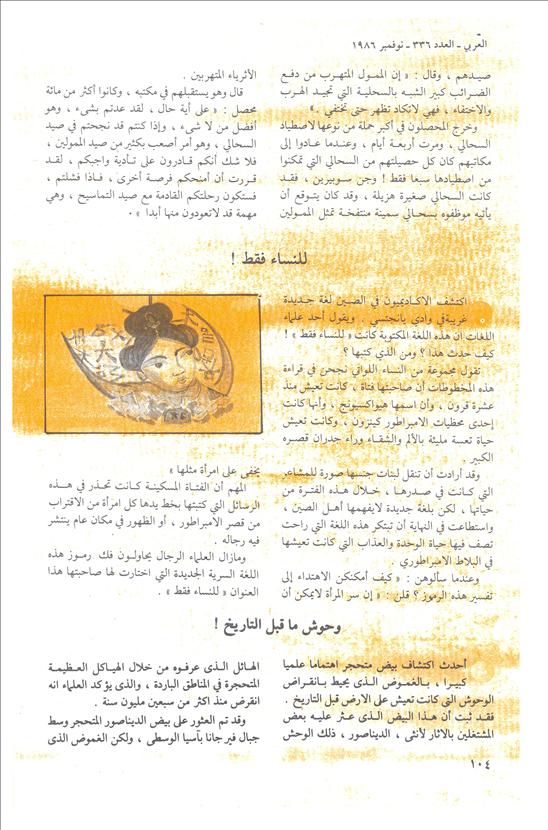 العربي - العدد ٣٣٦ - نوفمبر ١٩٨٦
صيدهم ، وقال : « إن الممول المتهرب من دفع
الضرائب كبير الشبه بالسحلية التي تجيد الهرب
والاختفاء ، فهي لاتكاد تظهر حتى تختفي . »
وخرج المحصلون في أكبر حملة من نوعها لاصطياد
السحالي ، ومرت أربعة أيام ، وعندما عادوا إلى
مكاتبهم كان كل حصيلتهم من السحالي التي تمكنوا
من اصطيادها سبعا فقط ! وجن سوبيرين ، فقد
كانت السحالي صغيرة هزيلة ، وقد كان يتوقع أن
يأتيه موظفوه بسحالي سمينة منتفخة تمثل الممولين
الأثرياء المتهربين .
قال وهو يستقبلهم في مكتبه ، وكانوا أكثر من مائة
محصل : « على أية حال ، لقد عدتم بشيء ، وهو
أفضل من لا شيء ، وإذا كنتم قد نجحتم في صيد
السحالي ، وهو أمر أصعب بكثير من صيد الممولين ،
فلا شك أنكم قادرون على تأدية واجبكم ، لقد
قررت أن أمنحكم فرصة أخرى ، فاذا فشلتم ،
فستكون رحلتكم القادمة مع صيد التماسيح ، وهي
مهمة قد لاتعودون منها أبدا » .
للنساء فقط !
اكتشف الاكاديميون في الصين لغة جديدة
غريبة في وادي يانجتسي . ويقول احد علماء
اللغات ان هذه اللغة المكتوبة كانت « للنساء فقط » !
كيف حدث هذا ؟ ومن الذي كتبها ؟
تقول مجموعة من النساء اللواتي نجحن في قراءة
هذه المخطوطات أن صاحبتها فتاة ، كانت تعيش منذ
عشرة قرون ، وأن اسمها هيواكسيونج ، وأنها كانت
إحدى محظيات الامبراطور كينزون ، وكانت تعيش
حياة تعسة مليئة بالألم والشقاء وراء جدران قصره
الكبير .
وقد أرادت أن تنقل لبنات جنسها صورة للمشاعر
التي كانت في صدرها ، خلال هذه الفترة من
حياتها ، لكن بلغة جديدة لايفهمها أهل الصين ،
واستطاعت في النهاية أن تبتكر هذه اللغة التي راحت
تصف فيها حياة الوحدة والعذاب التي كانت تعيشها
في البلاط الامبراطوري .
وعندما سألوهن : « كيف أمكنكن الاهتداء إلى
تفسير هذه الرموز ؟ قلن : « إن سر المرأة لايمكن أن
يخفى على امرأة مثلها »
المهم أن الفتاة المسكينة كانت تحذر في هذه
الرسائل التي كتبتها بخط يدها كل امرأة من الاقتراب
من قصر الامبراطور ، أو الظهور في مكان عام ينتشر
فيه رجاله .
ومازال العلماء الرجال يحاولون فك رموز هذه
اللغة السرية الجديدة التي اختارت لها صاحبتها هذا
العنوان « للنساء فقط » .
وحوش ما قبل التاريخ !
أحدث اكتشاف بيض متحجر اهتماما علميا
كبيرا ، بالغموض الذى يحيط بانقراض
الوحوش التي كانت تعيش على الارض قبل التاريخ .
فقد ثبت أن هذا البيض الذى عثر عليه بعض
المشتغلين بالاثار لأنثى ، الديناصور ، ذلك الوحش
الهائل الذى عرفوه من خلال الهياكل العظيمة
المتحجرة في المناطق الباردة ، والذى يؤكد العلماء انه
انقرض منذ اكثر من سبعين مليون سنة .
وقد تم العثور على بيض الديناصور المتحجر وسط
جبال فيرجانا بآسيا الوسطى ، ولكن الغموض الذى
١٠٤